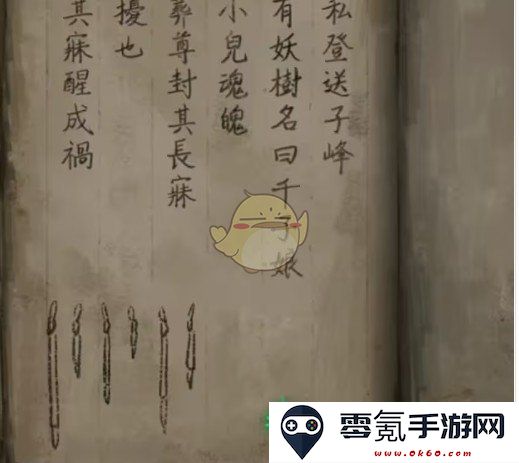 私登送子峰
有妖樹名曰千娘
小兒魂魄
葬尊封其長寐
擾也
其寐醒成禍
零氪手游网
www.ok60.com